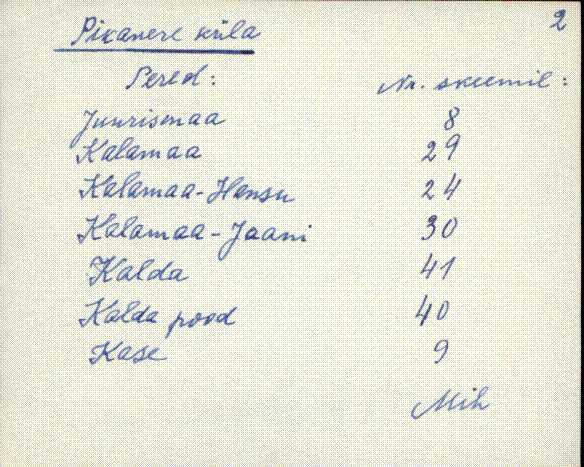 2
Pikavere küla
Pered: Nr. skeemil:
Juurismaa 8
Kalamaa 29
Kalamaa-Hansu 24
Kalamaa-Jaani 30
Kalda 41
Kalda pood 40
Kase 9
Mih